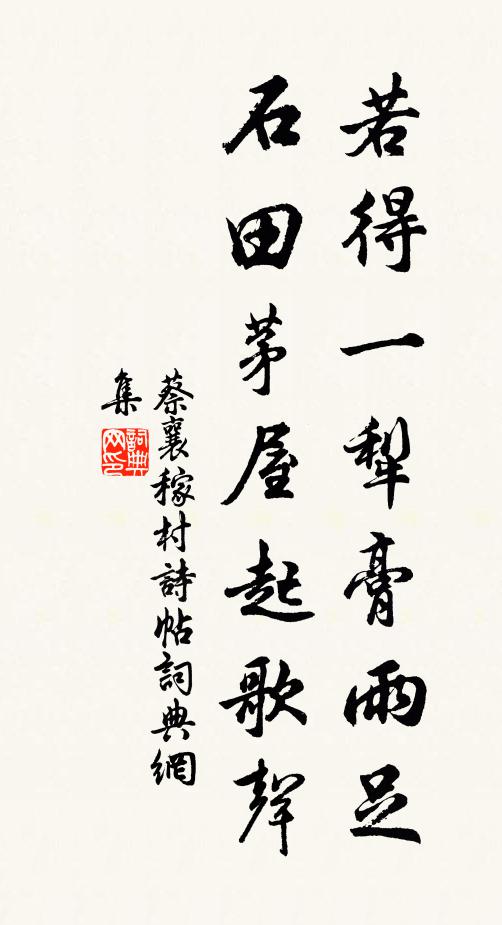 若得一犁膏雨足
石田茅屋起歌聲
蔡襄稼村詩帖詞典網
集
詞典
网印